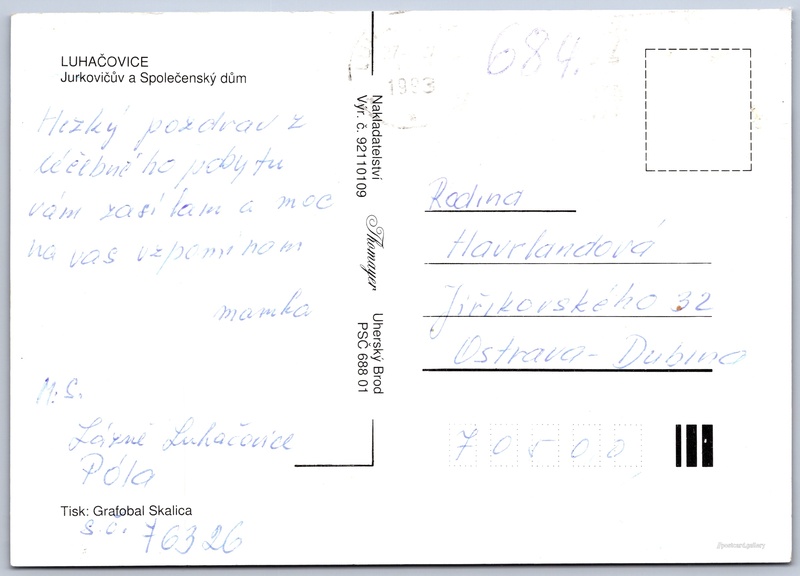 LUHAČOVICE
Jurkovičův a Společenský dům
Hezký pozdrav z
léčebného pobytu
vám zasílam a moc
na vas vzpominam
mamka
M.S.
Lázně Luhačovice
Póla
Tisk: Grafobal Skalica
s.č. 76326
Nakladatelství
Výr. č. 92110109
Thomayer
Uherský Brod
PSČ 688 01
1993
684.
Rodina
Havrlandová
Jiříkovského 32
Ostrava-Dubina
70500
//postcard.gallery